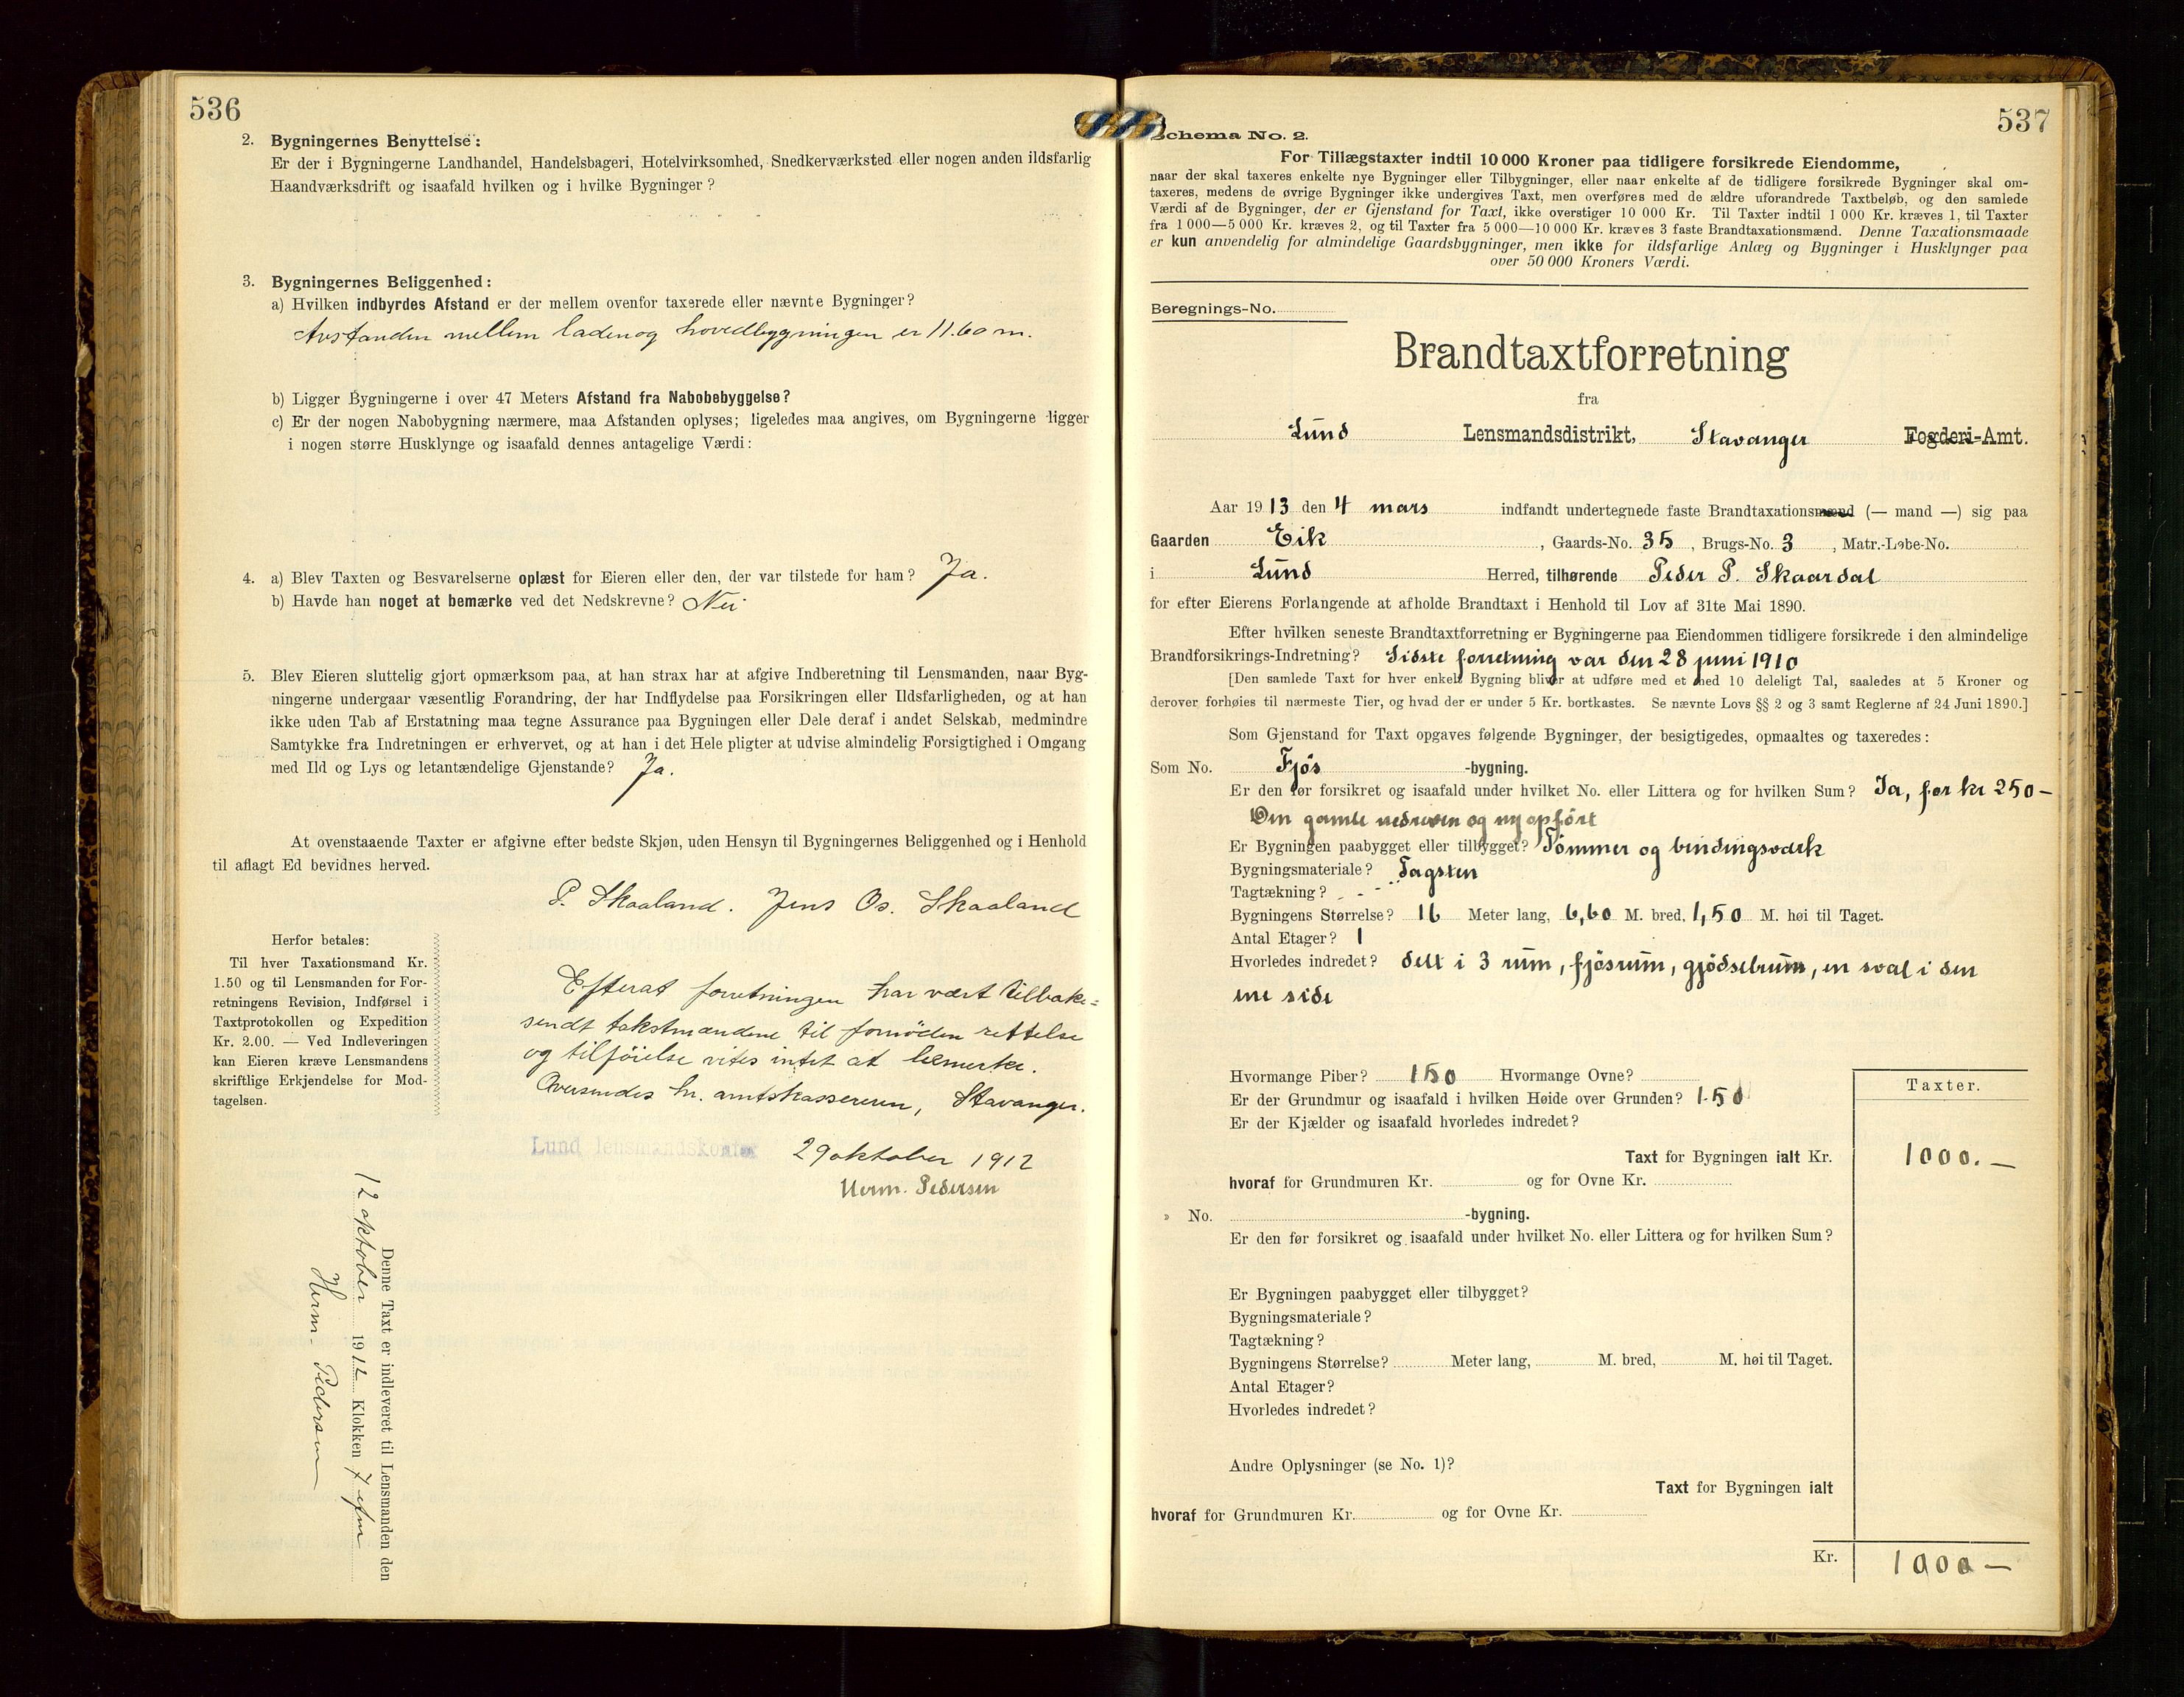 536
2. Bygningernes Benyttelse:
Er der i Bygningerne Landhandel, Handelsbageri, Hotelvirksomhed, Snedkerværksted eller nogen anden ildsfarlig
Haandværksdrift og isaafald hvilken og i hvilke Bygninger?
3. Bygningernes Beliggenhed:
a) Hvilken indbyrdes Afstand er der mellem ovenfor taxerede eller nævnte Bygninger?
Avstanden mellem laden og hovedbygningen er 11.60 m.
b) Ligger Bygningerne i over 47 Meters Afstand fra Nabobebyggelse?
c) Er der nogen Nabobygning nærmere, maa Afstanden oplyses; ligeledes maa angives, om Bygningerne ligger
i nogen større Husklynge og isaafald dennes antagelige Værdi:
4. a) Blev Taxten og Besvarelserne oplæst for Eieren eller den, der var tilstede for ham? Ja.
b) Havde han noget at bemærke ved det Nedskrevne? Nei
5. Blev Eieren sluttelig gjort opmærksom paa, at han strax har at afgive Indberetning til Lensmanden, naar Byg-
ningerne undergaar væsentlig Forandring, der har Indflydelse paa Forsikringen eller Ildsfarligheden, og at han
ikke uden Tab af Erstatning maa tegne Assurance paa Bygningen eller Dele deraf i andet Selskab, medmindre
Samtykke fra Indretningen er erhvervet, og at han i det Hele pligter at udvise almindelig Forsigtighed i Omgang
med Ild og Lys og letantændelige Gjenstande? Ja.
At ovenstaaende Taxter er afgivne efter bedste Skjøn, uden Hensyn til Bygningernes Beliggenhed og i Henhold
til aflagt Ed bevidnes herved.
P. Skaaland. Jens Os. Skaaland
Herfor betales:
Til hver Taxationsmand Kr.
1.50 og til Lensmanden for For-
retningens Revision, Indførsel i
Taxtprotokollen og Expedition
Kr. 2.00. — Ved Indleveringen
kan Eieren kræve Lensmandens
skriftlige Erkjendelse for Mod-
tagelsen.
Efterat forretningen har vært tilbake-
sendt takstmændene til fornøden rettelse
og tilføielse vites intet at bemerke.
Oversendes hr. amtskassereren, Stavanger.
Lund lensmandskontor 29 oktober 1912
Herm. Pedersen
Denne Taxt er indleveret til Lensmanden den
12 oktober 1912 Klokken 7 efm
Herm. Pedersen
537
Schema No. 2.
For Tillægstaxter indtil 10 000 Kroner paa tidligere forsikrede Eiendomme,
naar der skal taxeres enkelte nye Bygninger eller Tilbygninger, eller naar enkelte af de tidligere forsikrede Bygninger skal om-
taxeres, medens de øvrige Bygninger ikke undergives Taxt, men overføres med de ældre uforandrede Taxtbeløb, og den samlede
Værdi af de Bygninger, der er Gjenstand for Taxt, ikke overstiger 10 000 Kr. Til Taxter indtil 1 000 Kr. kræves 1, til Taxter
fra 1 000—5 000 Kr. kræves 2, og til Taxter fra 5 000—10 000 Kr. kræves 3 faste Brandtaxationsmænd. Denne Taxationsmaade
er kun anvendelig for almindelige Gaardsbygninger, men ikke for ildsfarlige Anlæg og Bygninger i Husklynger paa
over 50 000 Kroners Værdi.
Beregnings-No.
Brandtaxtforretning
fra
Lund Lensmandsdistrikt, Stavanger Fogderi-Amt.
Aar 1913 den 4 mars indfandt undertegnede faste Brandtaxationsmænd (— mand —) sig paa
Gaarden Eik, Gaards-No. 35, Brugs-No. 3, Matr.-Løbe-No.
i Lund Herred, tilhørende Peder P. Skaardal
for efter Eierens Forlangende at afholde Brandtaxt i Henhold til Lov af 31te Mai 1890.
Efter hvilken seneste Brandtaxtforretning er Bygningerne paa Eiendommen tidligere forsikrede i den almindelige
Brandforsikrings-Indretning? Sidste forretning var den 28 juni 1910
[Den samlede Taxt for hver enkelt Bygning bliver at udføre med et med 10 deleligt Tal, saaledes at 5 Kroner og
derover forhøies til nærmeste Tier, og hvad der er under 5 Kr. bortkastes. Se nævnte Lovs §§ 2 og 3 samt Reglerne af 24 Juni 1890.]
Som Gjenstand for Taxt opgaves følgende Bygninger, der besigtigedes, opmaaltes og taxeredes:
Som No. Fjøs -bygning.
Er den før forsikret og isaafald under hvilket No. eller Littera og for hvilken Sum? Ja, for kr 250 —
Den gamle nedreven og ny opført
Er Bygningen paabygget eller tilbygget? Tømmer og bindingsverk
Bygningsmateriale? Tagsten
Tagtækning?
Bygningens Størrelse? 16 Meter lang, 6,60 M. bred, 1,50 M. høi til Taget.
Antal Etager? 1
Hvorledes indredet? delt i 3 rum, fjøsrum, gjødselrum, en sval i den
ene side
Hvormange Piber? 150 Hvormange Ovne?
Er der Grundmur og isaafald i hvilken Høide over Grunden? 1.50
Er der Kjælder og isaafald hvorledes indredet?
Taxter.
Taxt for Bygningen ialt Kr. 1000. —
hvoraf for Grundmuren Kr. og for Ovne Kr.
» No. -bygning.
Er den før forsikret og isaafald under hvilket No. eller Littera og for hvilken Sum?
Er Bygningen paabygget eller tilbygget?
Bygningsmateriale?
Tagtækning?
Bygningens Størrelse? Meter lang, M. bred, M. høi til Taget.
Antal Etager?
Hvorledes indredet?
Andre Oplysninger (se No. 1)?
Taxt for Bygningen ialt
hvoraf for Grundmuren Kr. og for Ovne Kr.
Kr. 1000 —